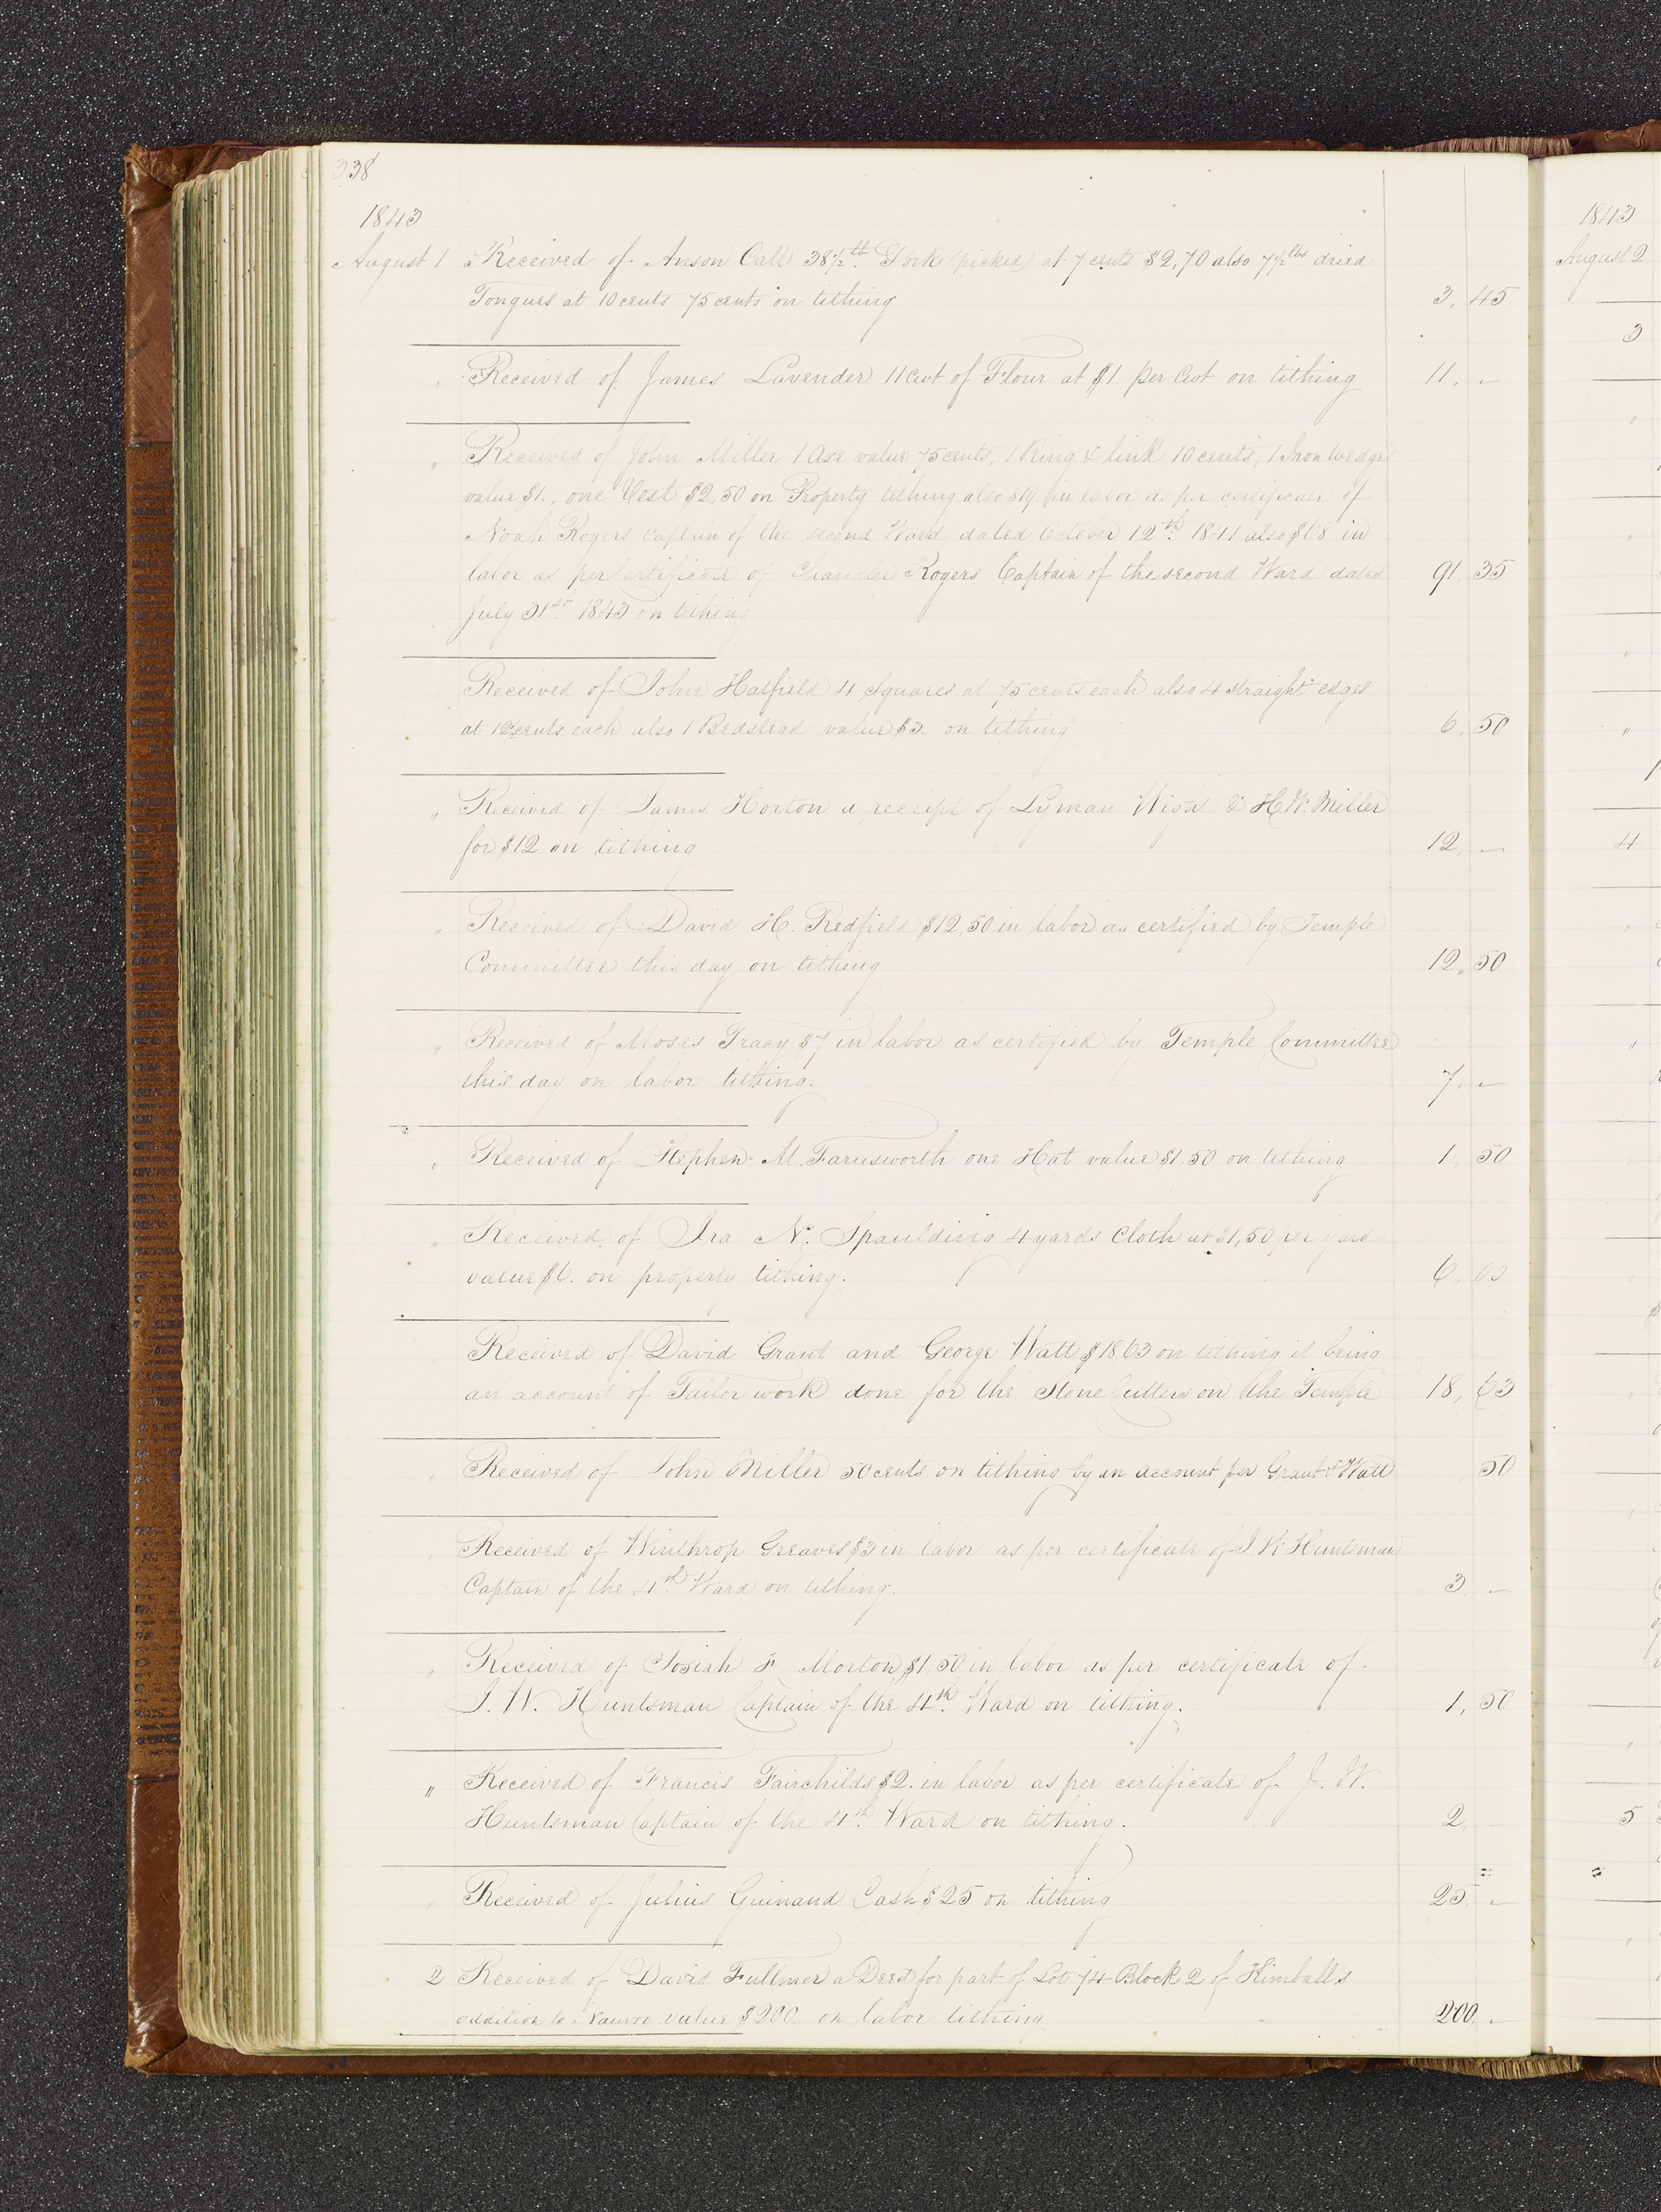 338
1843
August 1 Received of Anson Call 38½ lb Pork (picked) at 7 cents $2,70 also 7½ lbs dried
Tongues at 10 cents 75 cents on tithing 3, 45
" Received of James Lavender 11 Cwt of Flour at $1 per Cwt on tithing 11, —
" Received of John Miller 1 Axe value 75 cents, 1 Ring & link 10 cents, 1 Iron Wedge
value $1., one Vest $2,50 on Property tithing also $19 in labor as per certificate of
Noah Rogers Captain of the second Ward dated October 12th 1841 also $68 in
labor as per certificate of Chancler Rogers Captain of the second Ward dated 91, 35
July 31st 1843 on tithing
Received of John Hatfield 4 Squares at 75 cents each also 4 straight edges
at 12½ cents each also 1 Bedstead value $3. on tithing 6, 50
" Received of James Horton a receipt of Lyman Wight & H. W. Miller
for $12 on tithing 12, —
" Received of David H. Redfield $12,50 in labor as certified by Temple
Committee this day on tithing 12, 50
" Received of Moses Tracy $7, in labor as certified by Temple Committee
this day on labor tithing. 7. —
" Received of Stephen M. Farnsworth one Hat value $1,50 on tithing 1, 50
" Received of Ira N. Spaulding 4 yards Cloth at $1,50 per yard
value $6. on property tithing. 6, 00
" Received of David Grant and George Watt $18,63 on tithing it being
an account of Tailor work done for the Stone Cutters on the Temple 18, 63
" Received of John Miller 50 cents on tithing by an account per Grant & Watt 50
" Received of Winthrop Greaves $3 in labor as per certificate of J W Huntsman
Captain of the 4th Ward on tithing. 3. —
" Received of Josiah F. Morton $1,50 in labor as per certificate of
J. W. Huntsman Captain of the 4th Ward on tithing. 1, 50
" Received of Francis Fairchilds $2. in labor as per certificate of J. W.
Huntsman Captain of the 4th Ward on tithing. 2,
" Received of Julius Guinand Cash $25 on tithing 25. —
2 Received of David Fullmer a Deed for part of Lot 74 Block 2 of Kimball's
addition to Nauvoo value $200. on labor tithing 200, —
1843
August 2
3
"
4
5